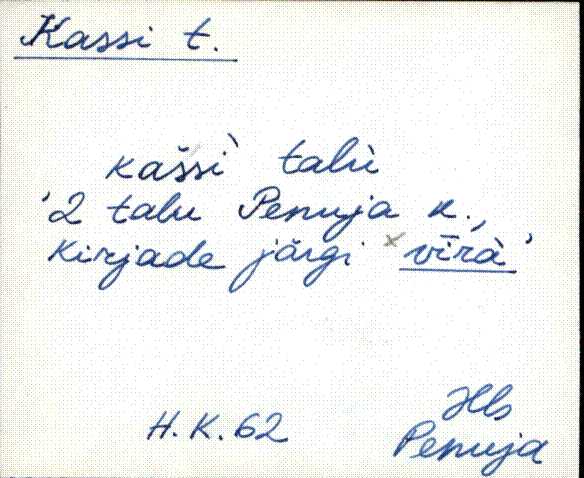 Kassi t.
kašši̇̀ talù
'2 talu Penuja k.,
kirjade järgi × vīrà'
H.K. 62
Hls
Penuja